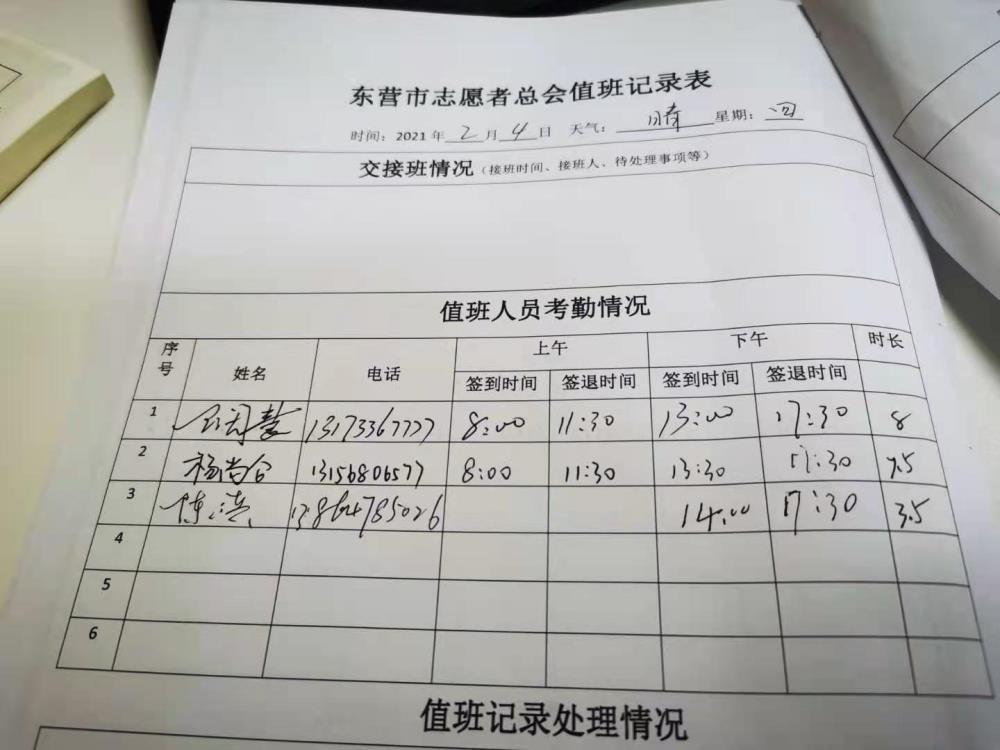 东营市志愿者总会值班记录表
时间：2021年2月4日 天气：晴 星期：四
交接班情况（接班时间、接班人、待处理事项等）
值班人员考勤情况
序号 姓名 电话 上午 下午 时长
签到时间 签退时间 签到时间 签退时间
1 13173367777 8:00 11:30 13:00 17:30 8
2 杨尚合 13156806577 8:00 11:30 13:30 17:30 7.5
3 陈浩 13864785026 14:00 17:30 3.5
4
5
6
值班记录处理情况